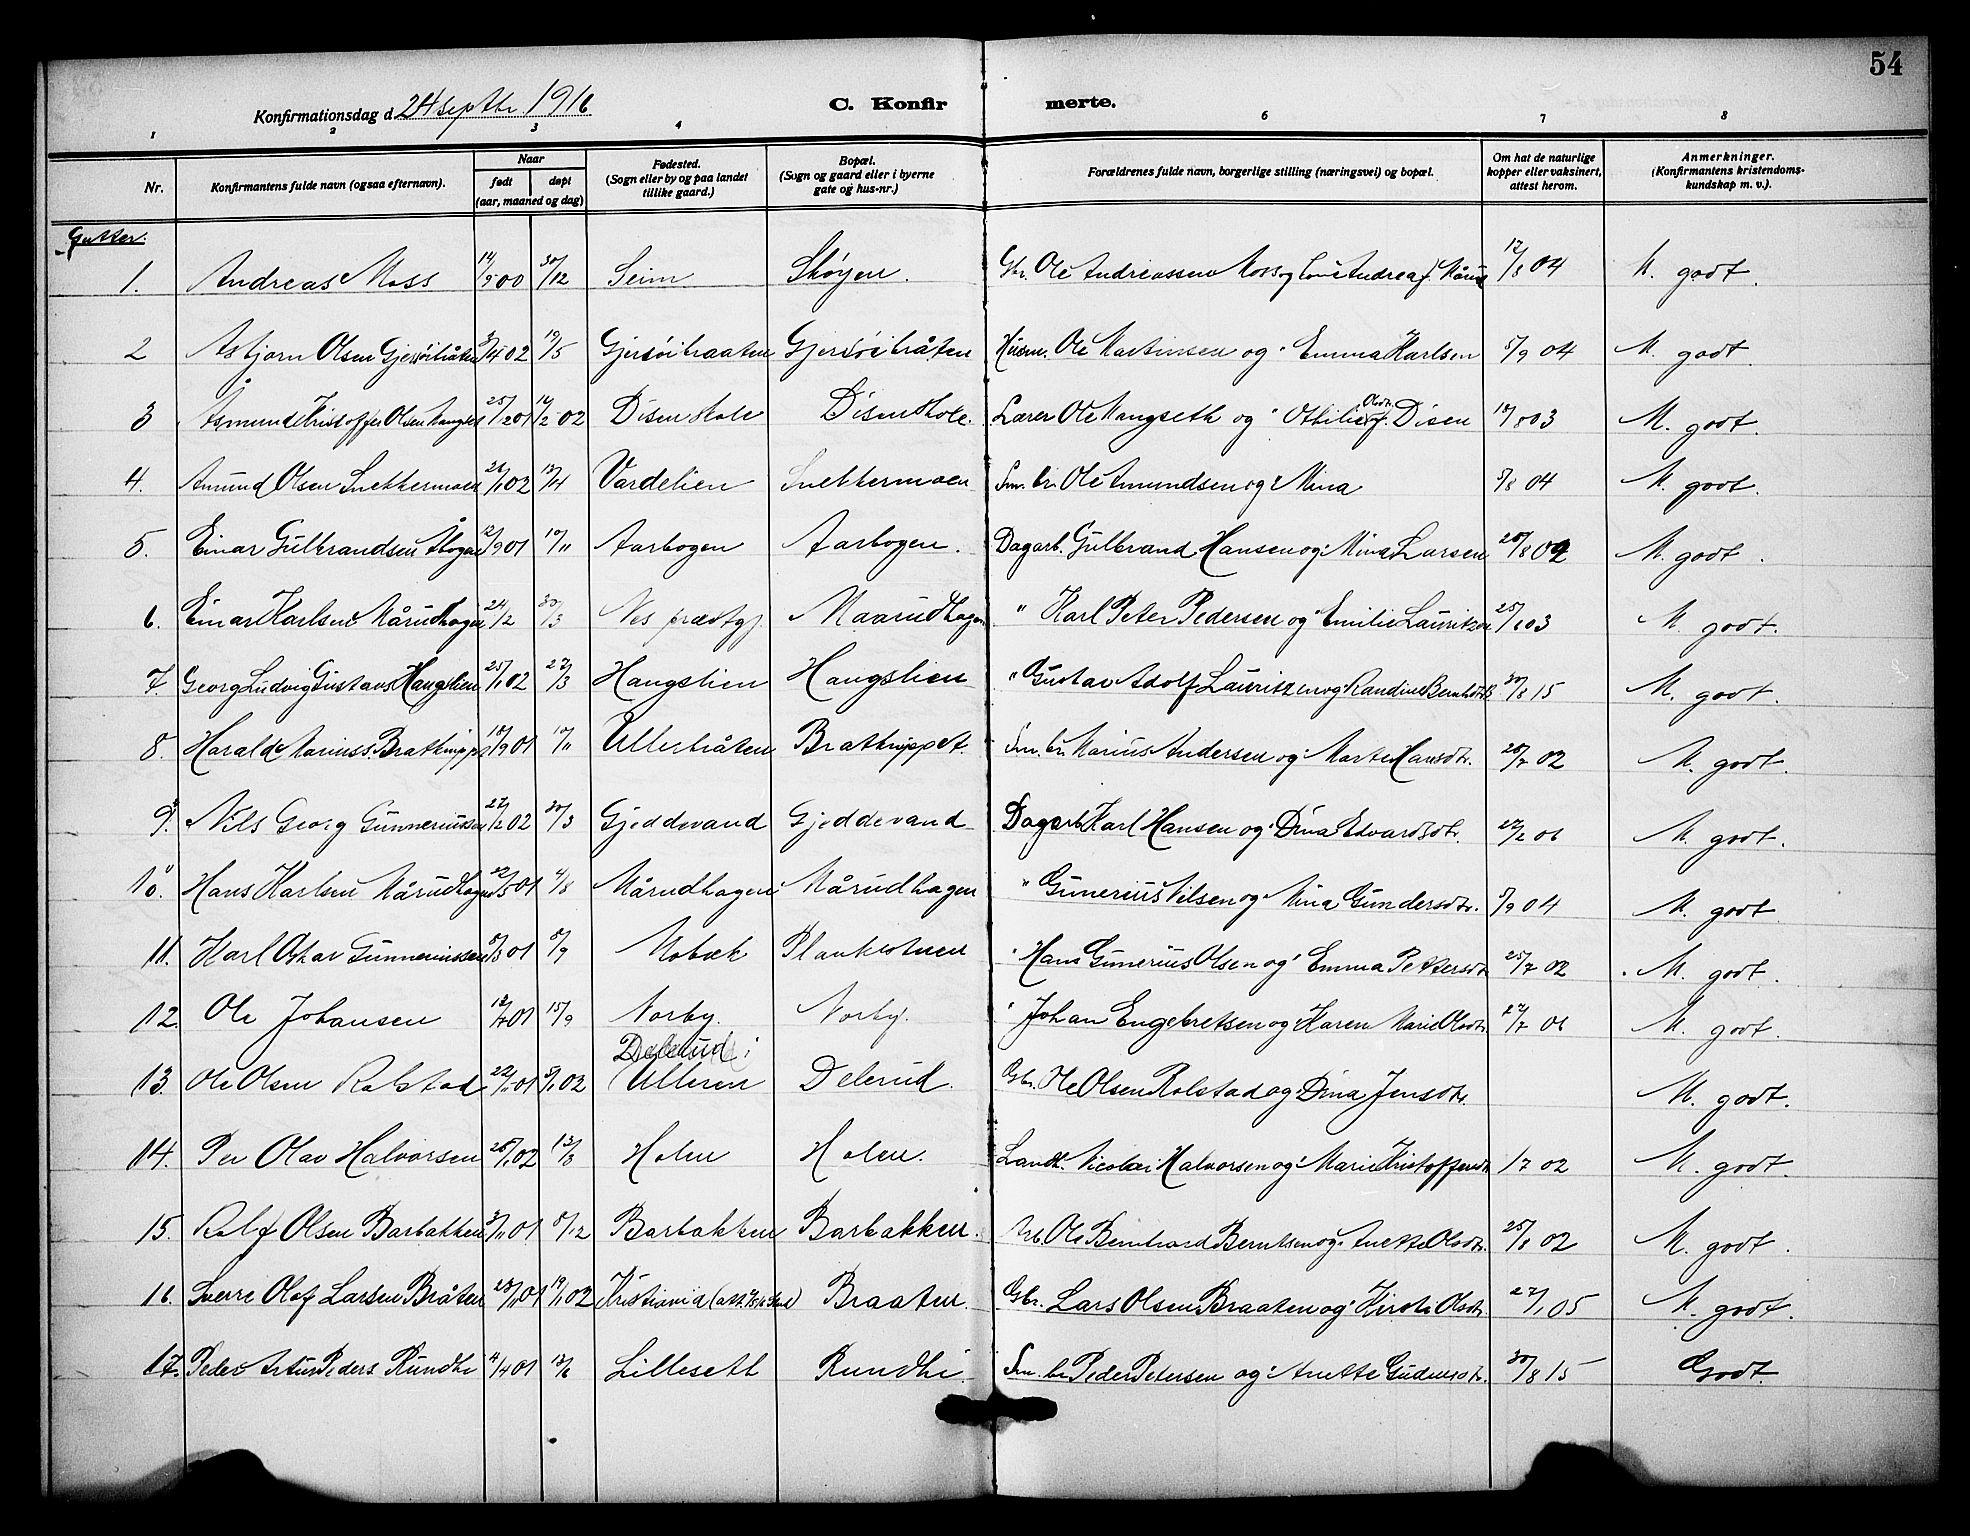 54
Konfirmationsdag d 24 septbr. 1916 C. Konfir merte.
1 2 3 4 6 7 8
Nr. Konfirmantens fulde navn (ogsaa efternavn). Naar født døpt (aar, maaned og dag) Fødested. (Sogn eller by og paa landet tillike gaard.) Bopæl. (Sogn og gaard eller i byerne gate og hus-nr.) Forældrenes fulde navn, borgerlige stilling (næringsvei) og bopæl. Om hat de naturlige kopper eller vaksinert, attest herom. Anmerkninger. (Konfirmantens kristendoms- kundskap m. v.).
Gutter.
1. Andreas Moss 14/5 00 30/12 Seim Skøyen. Gbr. Ole Andreassen Moss og Andrea 17/8 04 M. godt.
2 Asbjørn Olsen Gjersøibråten 3/4 02 19/5 Gjersøibraaten Gjersøibråten Husm. Ole Martinsen og Emma Karlsen 5/9 04 M. godt.
3 Åsmund Kristoffer Olsen 25/12 01 16/2 02 Disen skole Disen skole. Lærer Ole Mangseth og Othilie Olsdtr. f. Disen 18/8 03 M. godt.
4. Amund Olsen Snekkermoen 26/1 02 13/4 Vardelien Snekkermoen Sm. br. Ole Amundsen og Mina 5/8 04 M. godt.
5. Einar Gulbrandsen Åbogen 12/9 01 10/11 Aarbogen Aarbogen. Dagarb. Gulbrand Hansen og Mina Larsen 28/8 02 M. godt.
6. Einar Karlsen Mårudhagen 24/2 30/3 Nes prestgj. Maarudhagen " Karl Peter Pedersen og Emilie Lauritzen 25/1 03 M. godt.
7 Georg Ludvig Gustavs Hangslien 25/1 02 27/3 Hangslien Hangslien " Gustav Adolf Lauritzen og Randine Berntsdtr 30/8 15 M. godt.
8. Harald Mariuss. Bratknippet 18/9 01 10/11 Ullerbråten Bratknippet. Sm. br. Marius Andersen og Marte Hansdtr. 28/7 02 M. godt.
9. Nils Georg Gunneriussen 27/2 02 30/3 Gjeddevand Gjeddevand Dagarb. Karl Hansen og Dina Edvardsdtr. 27/2 06 M. godt.
10. Hans Karlsen Mårudhagen 22/5 01 4/8 Mårudhagen Mårudhagen " Gunerius Nilsen og Mina Gundersdtr. 5/9 04 M. godt
11. Karl Oskar Gunneriussen 5/3 01 8/9 Mobæk Plankestuen " Hans Gunerius Olsen og Emma Pettersdtr 25/7 02 M. godt.
12. Ole Johansen 12/7 01 15/9 Norby. Norby. " Johan Engebretsen og Karen Marie Olsdtr. 27/7 06 M. godt.
Delerud i
13. Ole Olsen Rolstad 22/11 01 5/1 02 Ulleren Delerud. Gbr. Ole Olsen Rolstad og Dina Jensdtr. M. godt.
14. Per Olav Halvorsen 28/1 02 13/3 Holen Holen. Landh. Nicolai Halvorsen og Marie Kristoffersdtr 1/7 02 M. godt.
15. Rolf Olsen Barbakken 3/11 01 8/12 Barbakken Barbakken. Ole Bernhard Berntsen og Anette Olsdtr. 25/8 02 M. godt.
16. Sverre Olaf Larsen Bråten 23/11 01 19/1 02 Kristiania Braaten. Gbr. Lars Olsen Braaten og Kirste Olsdtr. 27/1 05 M. godt.
17. Peder Artur Peders. Rundhi 11/4 01 13/6 Lilleseth Rundhi. Sm. br. Peder Petersen og Anette Gudmsdtr. 30/8 15 Godt.